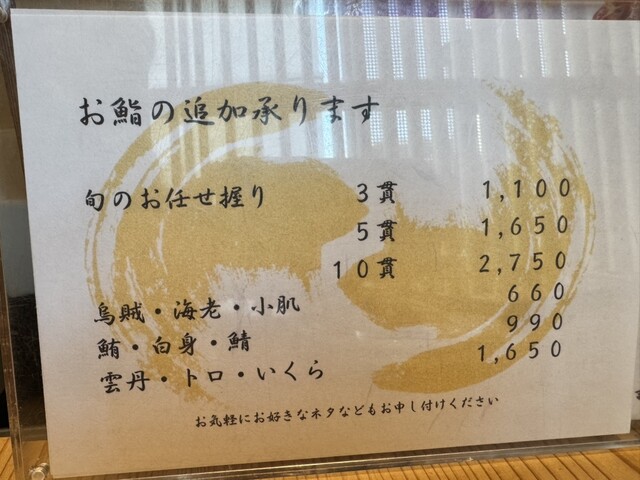 お鮨の追加承ります
旬のお任せ握り 3貫 1,100
5貫 1,650
10貫 2,750
烏賊・海老・小肌 660
鮪・白身・鯖 990
雲丹・トロ・いくら 1,650
お気軽にお好きなネタなどもお申し付けください